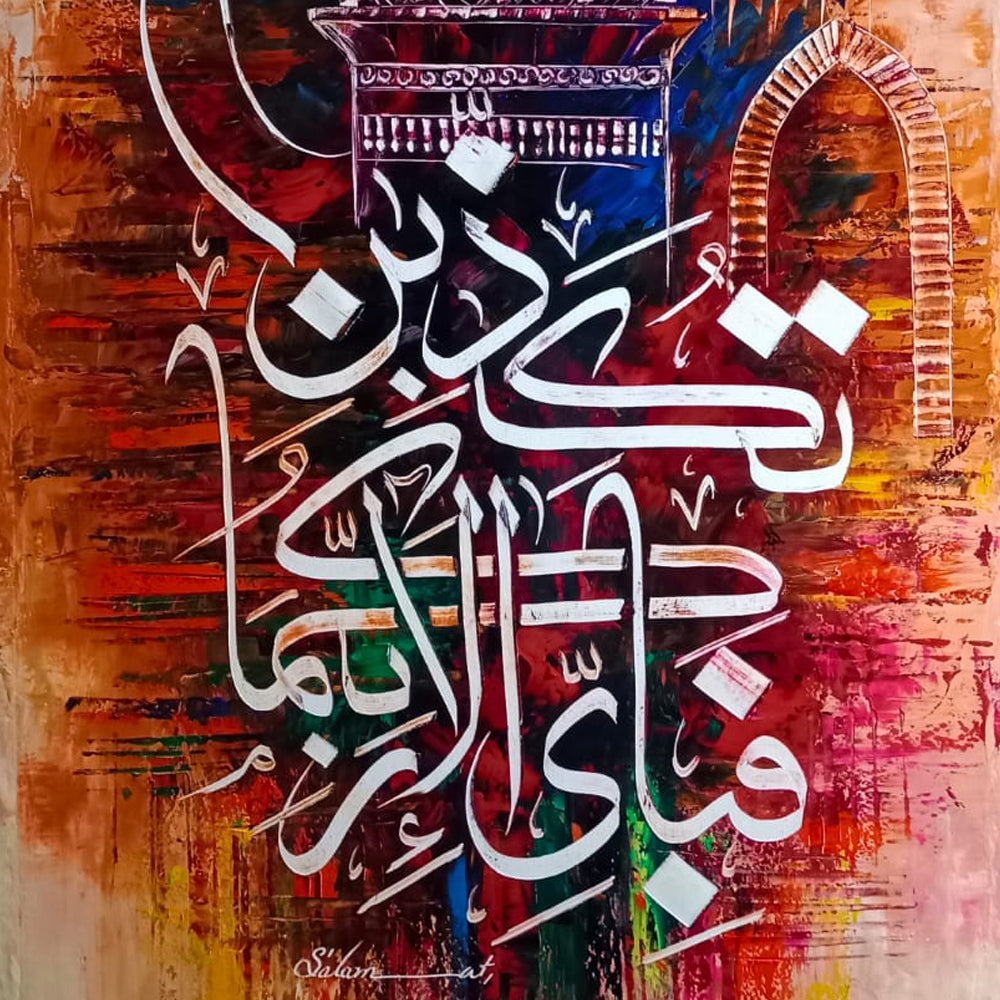 فَبِاَيِّ اٰلَآءِ رَبِّكُمَا
تُكَذِّبٰنِ
Salam____at,